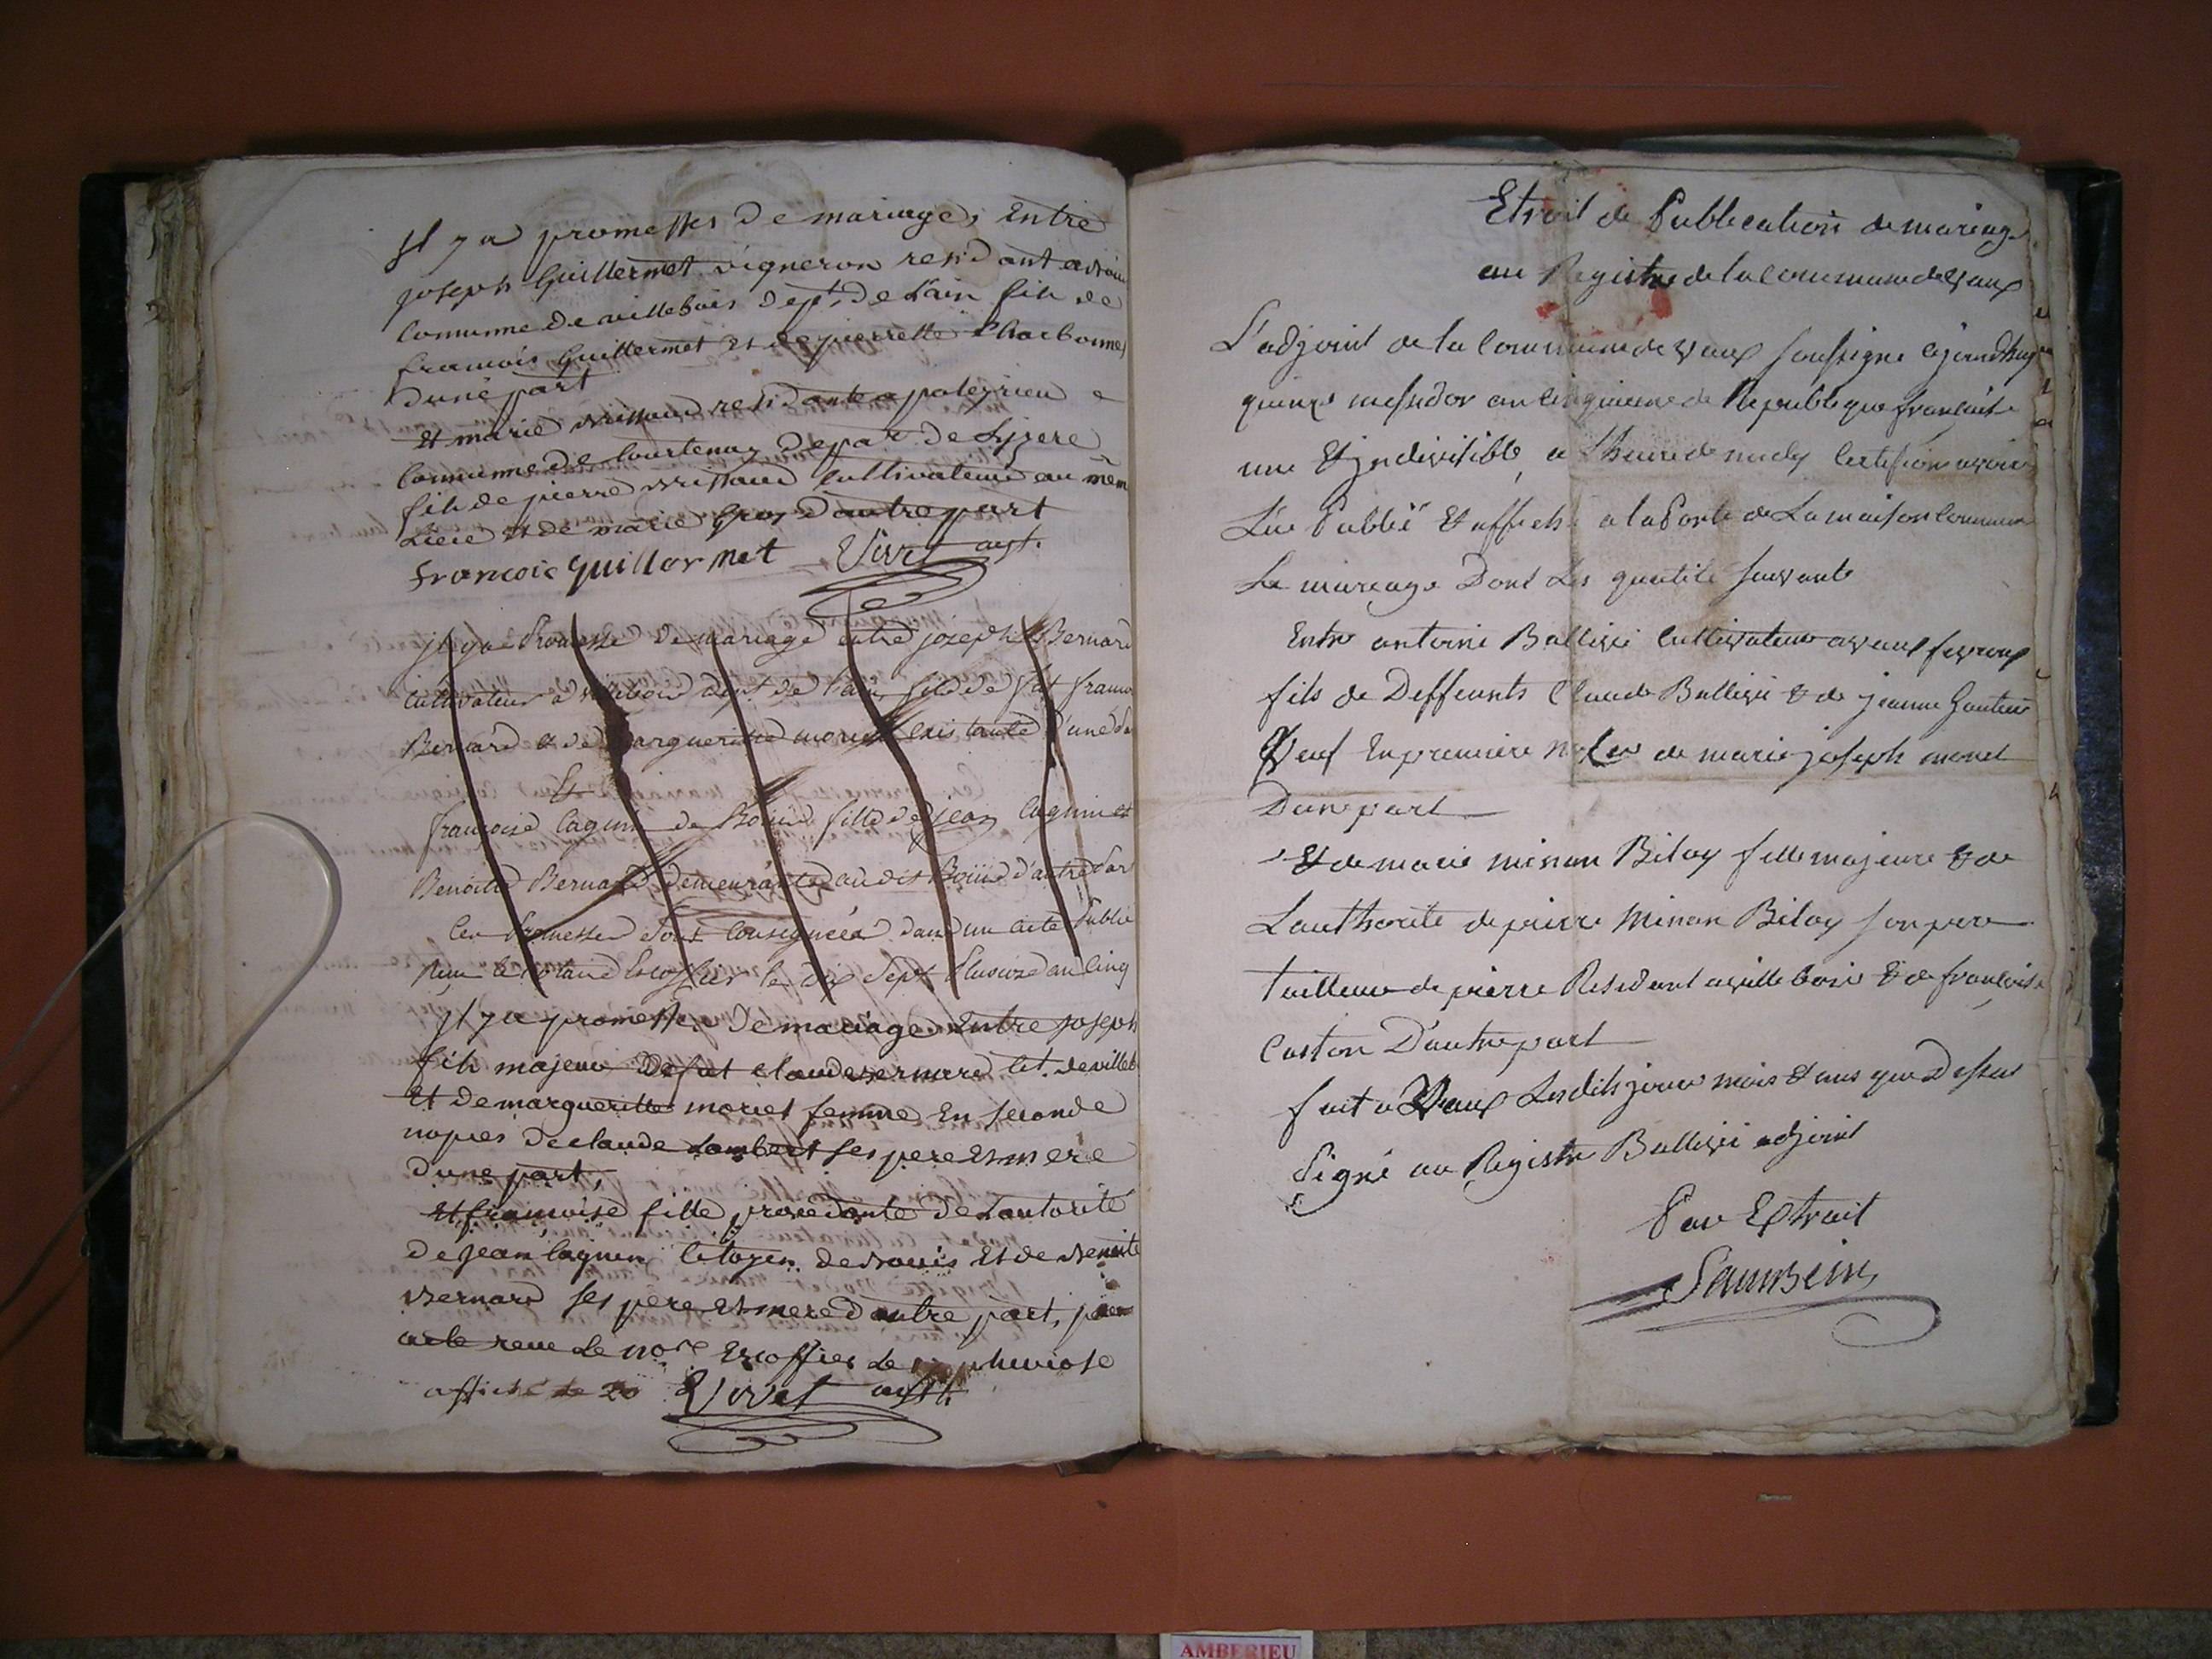 jl y a promesses de mariage, Entre
joseph Guillermet vigneron residant a
Comunne de villebois dept. de Lain fils de
francois Guillermet Et de pierrette Charbonnet
dune part
Et marie residante a poleyrieu
Comunne de Courtenay depar. de Lizere
fih de pierre Cultivateur au mem
Lieu Et de marie Gros dautre part
francois guillarmet Vivet agt.
jl y a Promesse de mariage entre joseph Bernard
Cultivateur a villebois dept de l'ain fils de fut francois
Bernard et de Marguerite moriet existante d'une
Et
francoise Cagnin de Bouis fille de jean Cagnin et
Benoitte Bernard demeurante audit Bouis d'autre Par
Ces Promesses Sont Consignées dans un acte Public
Reçu le Notaire Escoffier le dix Sept Pluviose an Cinq
jl y a promesses de mariage Entre joseph
fih majeur De fut claude Bernard Cit. de villeb
Et de margueritte moriet femme En seconde
nopces de claude Lambert ses pere Et mere
dune part,
Et francoise fille procedante de Lautorité
de jean Cagnin Citoyen de Bouis Et de Benoite
Bernard ses père Et mere dautre part, par
acte reçu Le nore Escoffier Le pluviose
affiché le 20 Vivet agt.
Etrait de Publication de mariage
au Registre de la Commune de Vaux
L'adjoint de la Commune de Vaux soussigne cejourdhuy
quinze messidor an cinquieme de Republique francaise
une Et jndivisible, a Lheure de midy Certifion avoir
Lue Publié Et affiché a la Porte de La maison Commune
Le mariage Dont Les quatité suivante
Entre antoine Ballivi Cultivateur a Vaux fevroux
fils de Deffeunts Claude Ballivi & de jeanne Gauteir
Veuf En premiere de marie joseph monet
Dune part
Et de marie minan Bilay fille majeure & de
Lauthorité de pierre Minan Bilay son pere
tailleur de pierre Residant a villebois & de francoise
Caston D'autre part
fait a Vaux Lesdits jour mois & ans que Dessus
Signé au Registre Ballivi adjoint
Par Extrait
AMBERIEU